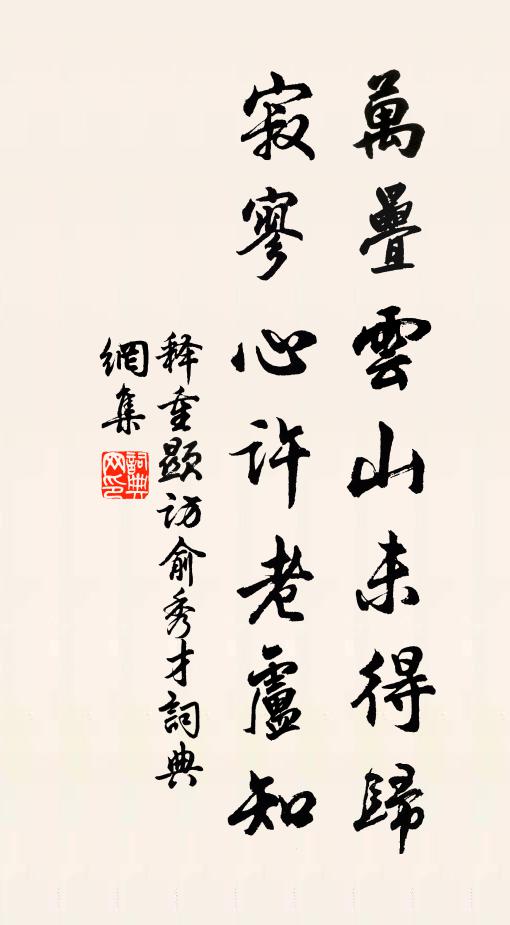 萬疊雲山未得歸
寂寥心許老盧知
释重顯訪俞秀才詞典
網集
詞典网印